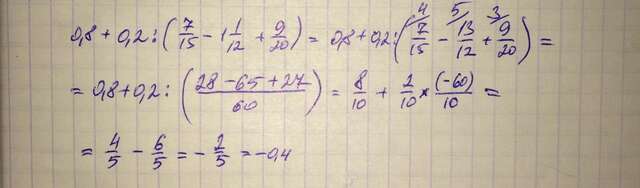 0,8 + 0,2 : (7/15 - 1 1/12 + 9/20) = 0,8 + 0,2 : (⁴⁄7/15 - ⁵⁄13/12 + ³⁄9/20) =
= 0,8 + 0,2 : ((28 - 65 + 27)/60) = 8/10 + 2/10 × (-60)/10 =
= 4/5 - 6/5 = - 2/5 = -0,4